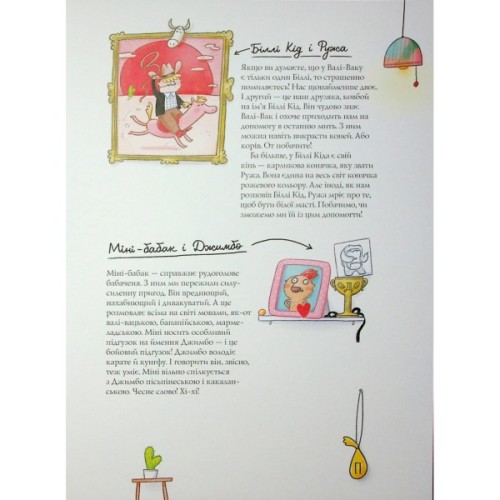 Біллі Кід і Ружа
Якщо ви думаєте, що у Валі-Ваку
є тільки один Біллі, то страшенно
помиляєтесь! Нас щонайменше двоє.
І другий — це наш дружка, ковбой
на ім'я Біллі Кід. Він чудово знає
Валі-Вак і охоче приходить нам на
допомогу в останню мить. З ним
можна навіть викрасти коней. Або
корів. От побачите!
Ба більше, у Біллі Кіда є свій
кінь — карликова конячка, яку звати
Ружа. Вона єдина на весь світ конячка
рожевого кольору. Але іноді, як нам
розповів Біллі Кід, Ружа мріє про те,
щоб бути білої масті. Побачимо, чи
зможемо ми їй із цим допомогти!
Міні-бабак і Джимбо
Міні-бабак — справжнє рудоголове
бабаченя. З ним ми пережили силу-
силенну пригод. Він вреднющий,
нахабнющий і дивакуватий. А ще
розмовляє всіма на світі мовами, як-от
валі-вацькою, бапапійською, марме-
ладською. Міні носить особливий
підгузок на ймення Джимбо — і це
бойовий підгузок! Джимбо володіє
карате й кунгфу. І говорити він, звісно,
теж уміє. Міні вільно спілкується
з Джимбо пісьпінеською і какалан-
ською. Чесне слово! Хі-хі!
П